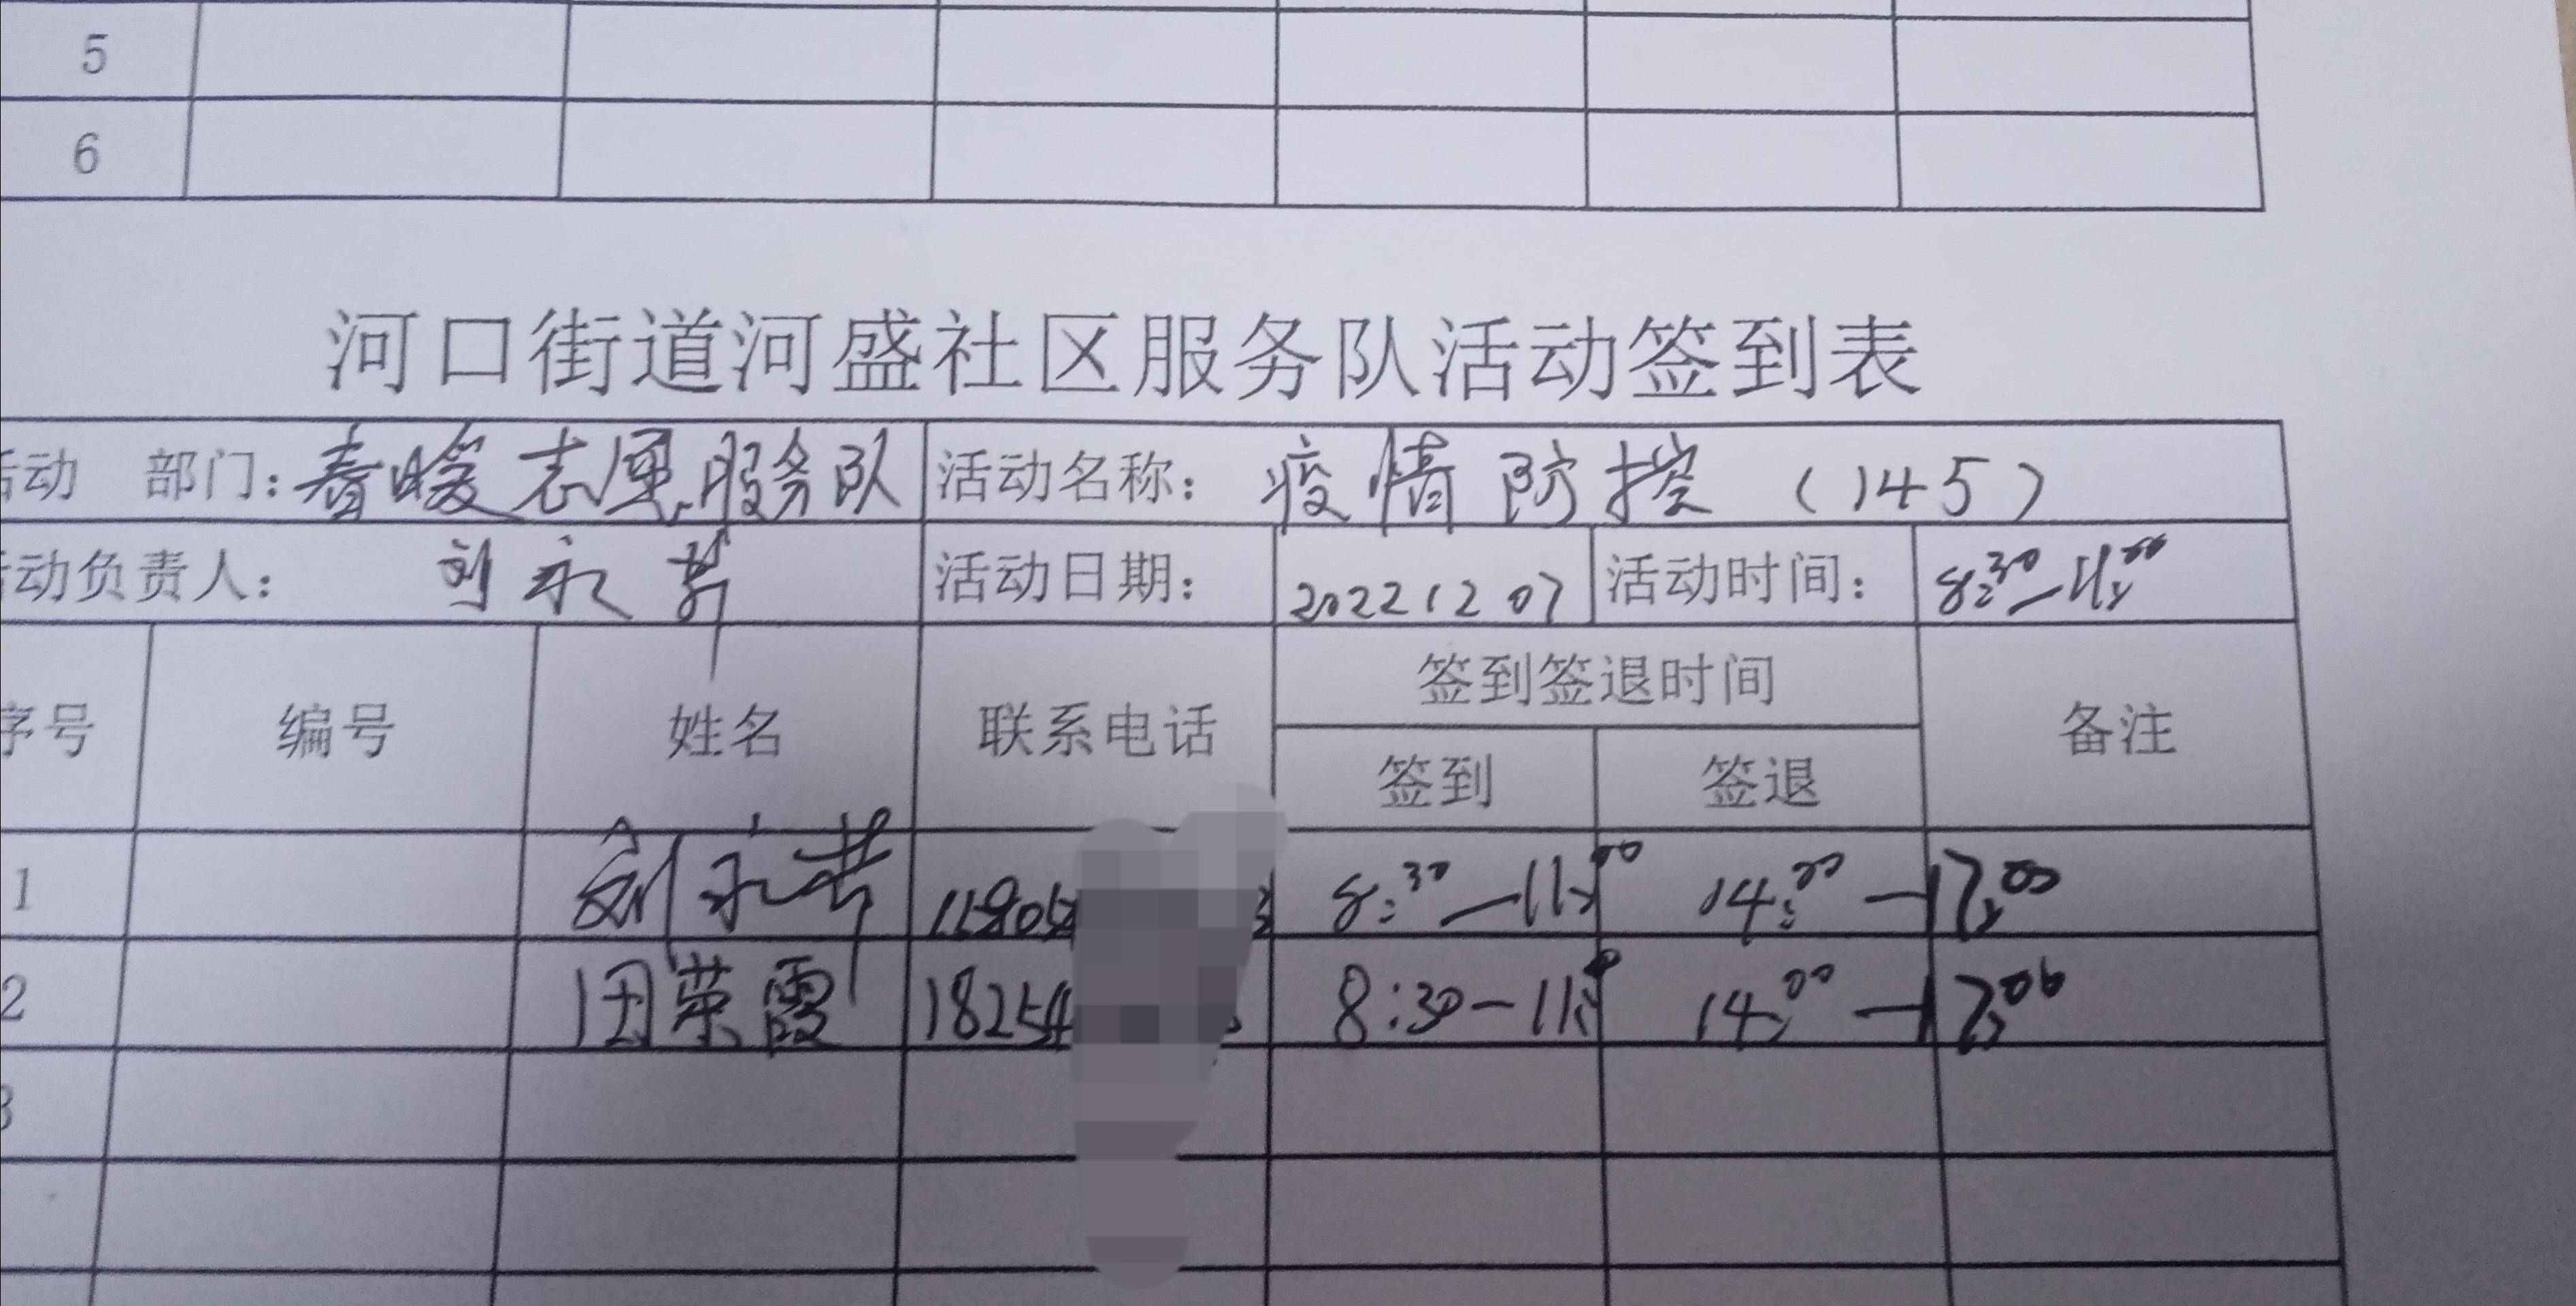 5
6
河口街道河盛社区服务队活动签到表
活动 部门：春暖志愿服务队 活动名称：疫情防控（145）
活动负责人： 刘永芳 活动日期： 20221207 活动时间： 8:30—11:00
序号 编号 姓名 联系电话 签到签退时间 备注
签到 签退
1 刘永 8:30—11:00 14:00—17:00
2 田荣霞 18254 8:30—11:00 14:00—17:00
3